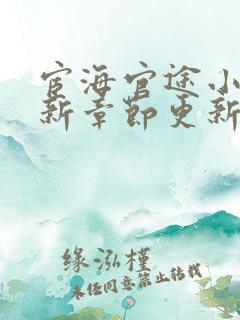 宦海官途小
新章节更新
缘泓槿
未经同意禁止转载